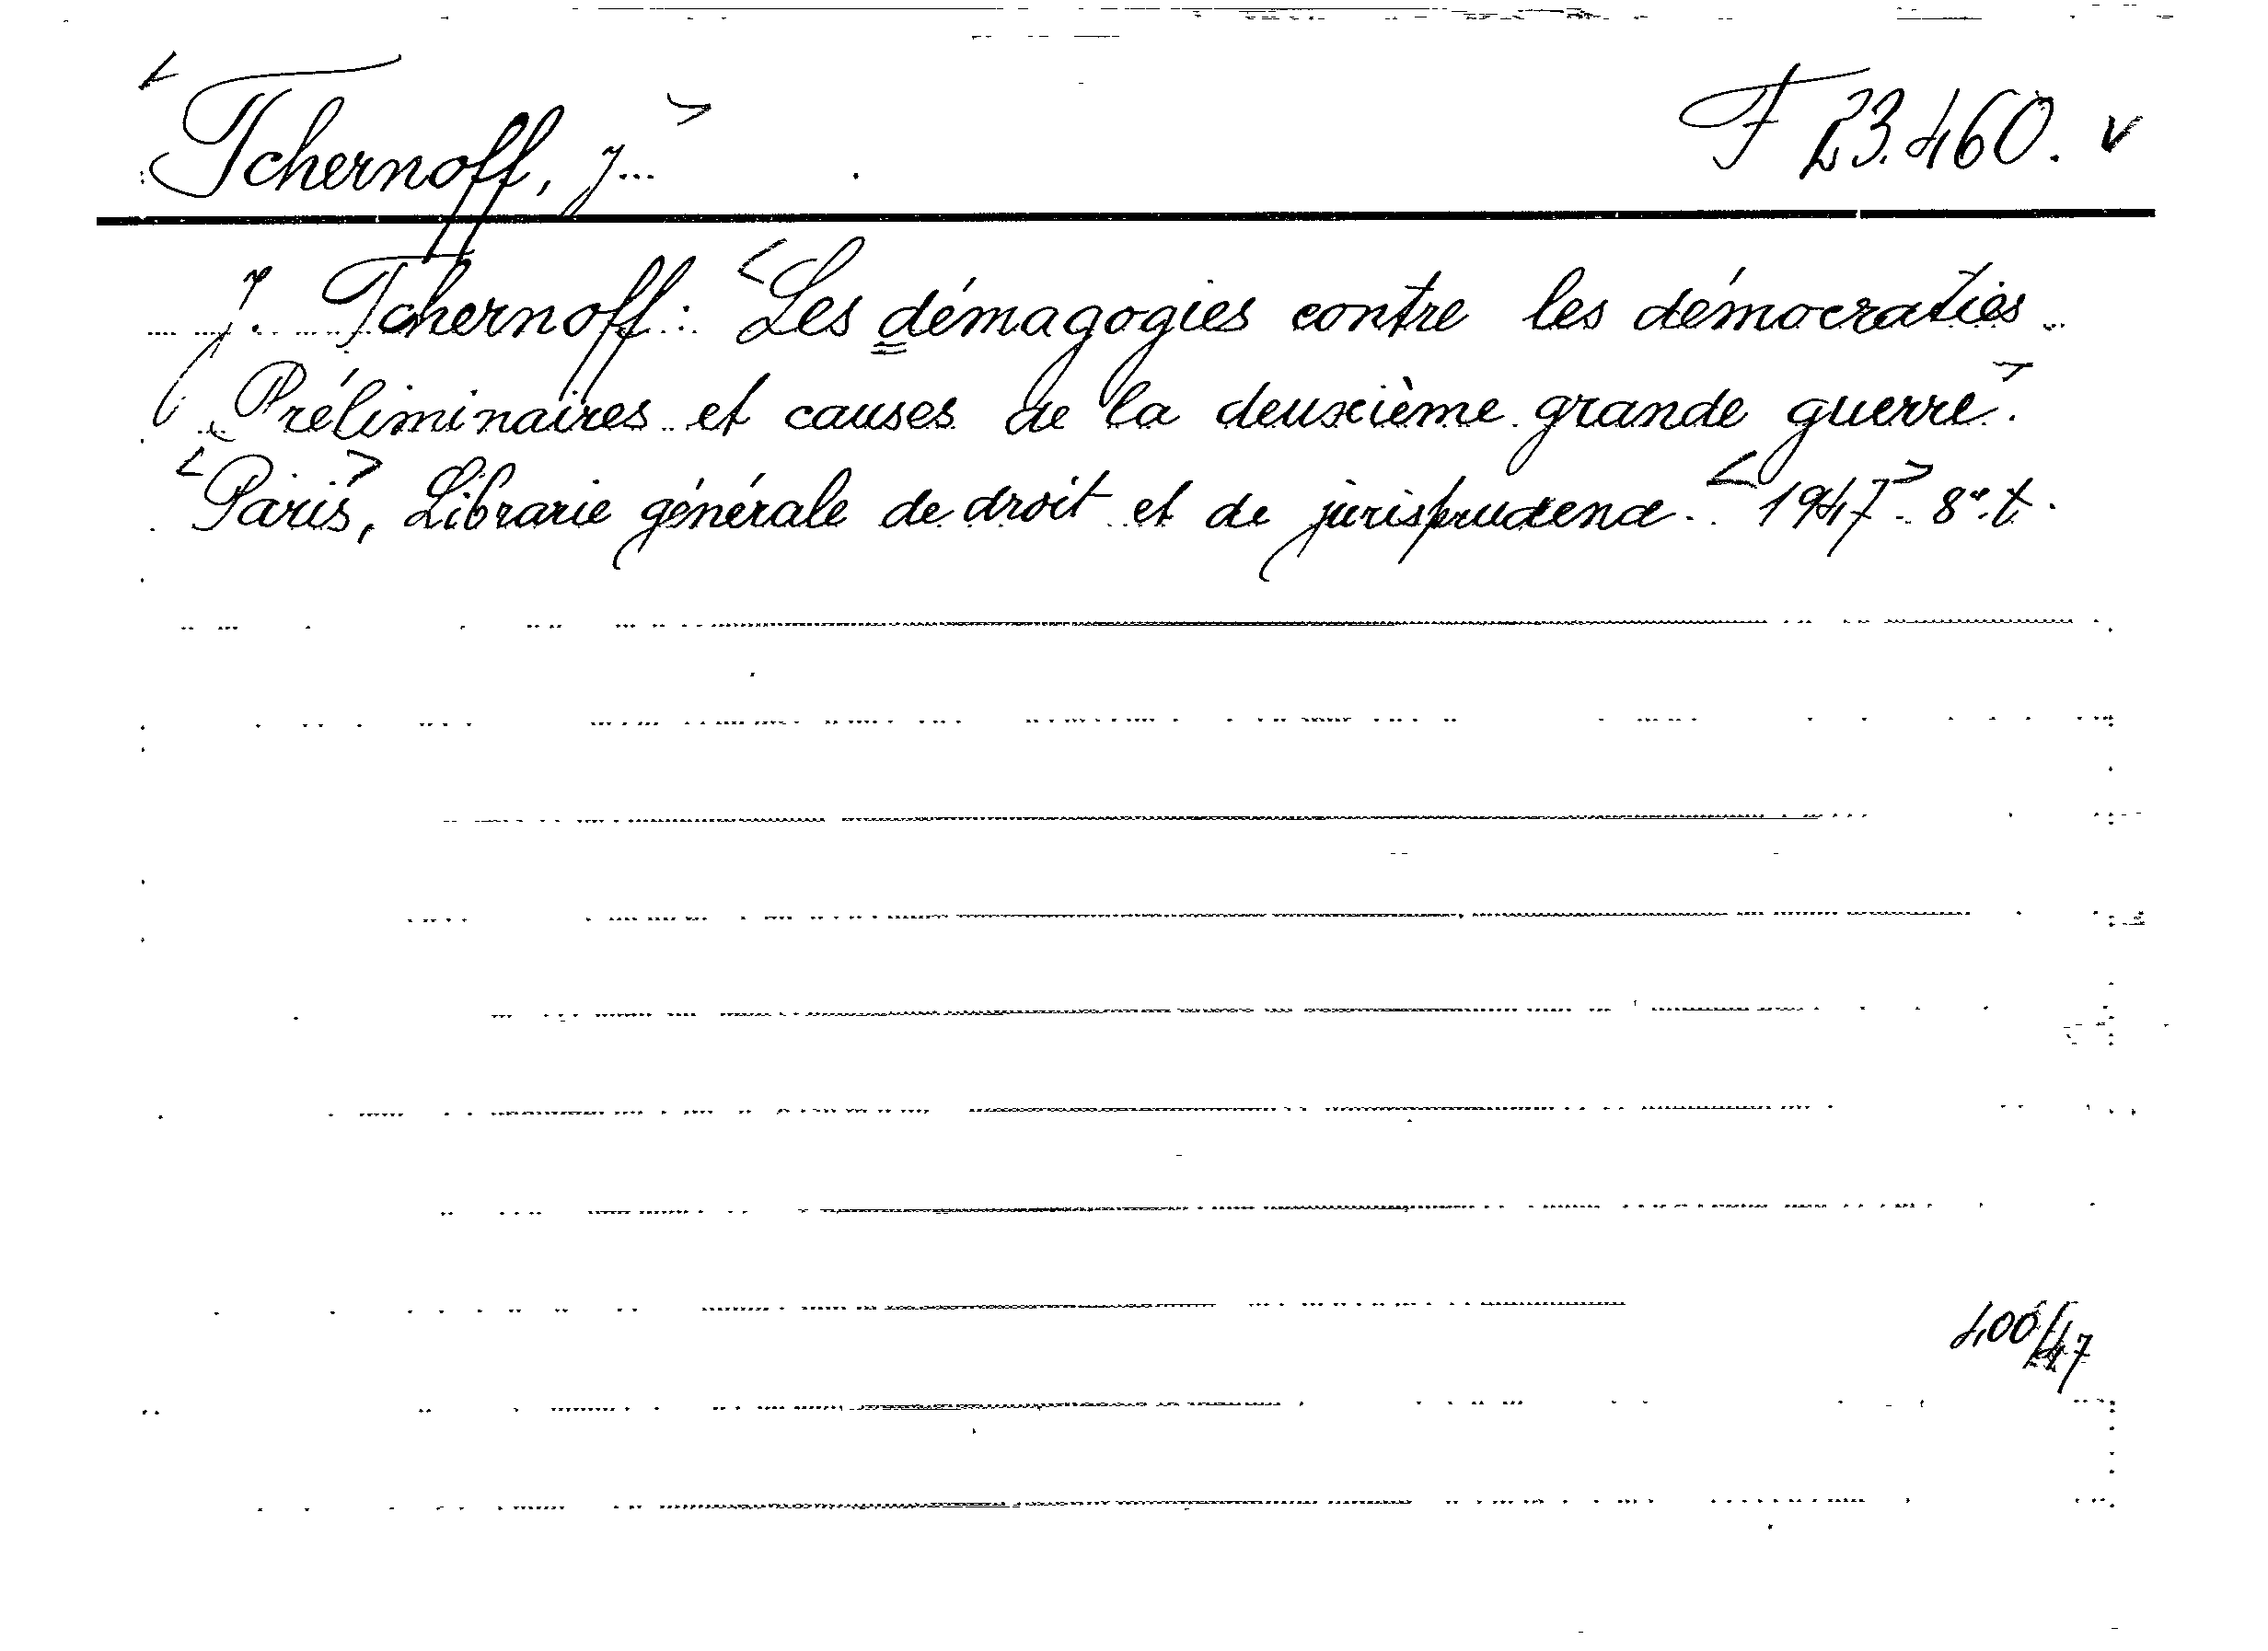 <Tchernoff, J...> F 23.460. v
J. Tchernoff: <Les démagogies contre les démocraties.
Préliminaires et causes de la deuxième grande guerre>.
<Paris>, Librairie générale de droit et de jurisprudence. <1947>. 8°. t.
400/47